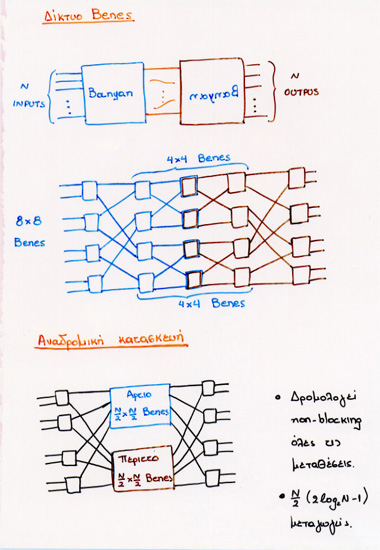 Δίκτυο Benes
N
INPUTS
Banyan
Banyan
N
OUTPUS
4x4 Benes
8x8
Benes
4x4 Benes
Αναδρομική κατασκευή
Άρτιο
N/2 x N/2 Benes
Περιττό
N/2 x N/2 Benes
• Δρομολογεί
non-blocking
όλες τις
μεταθέσεις.
• N/2 (2log₂N-1)
μεταγωγείς.